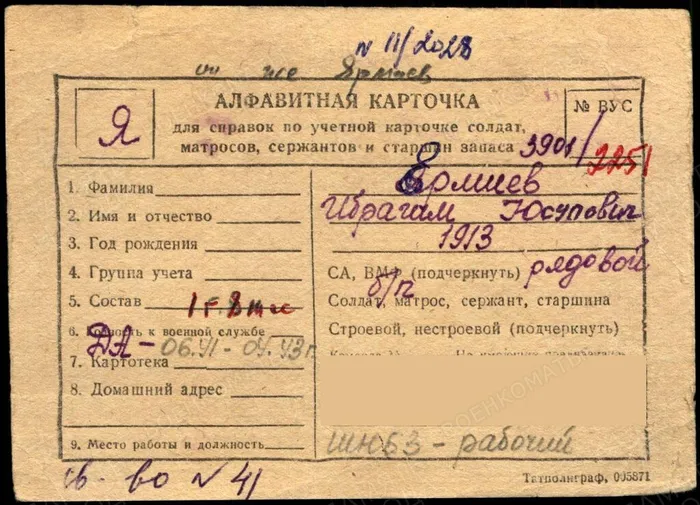 N 11/2028
он же Ярмиев
АЛФАВИТНАЯ КАРТОЧКА
Я
для справок по учетной карточке солдат,
матросов, сержантов и старшин запаса
№ ВУС
3901/2251
1. Фамилия
Ермиев
2. Имя и отчество
Ибрагам Юсупович
3. Год рождения
1913
4. Группа учета
СА, ВМФ (подчеркнуть) рядовой
5. Состав
б/п
Солдат, матрос, сержант, старшина
6. Годность к военной службе
Строевой, нестроевой (подчеркнуть)
ДА - 06.41 - 04.43 г.
7. Картотека
8. Домашний адрес
9. Место работы и должность
- рабочий
св-во N 41
Татполиграф, 005871